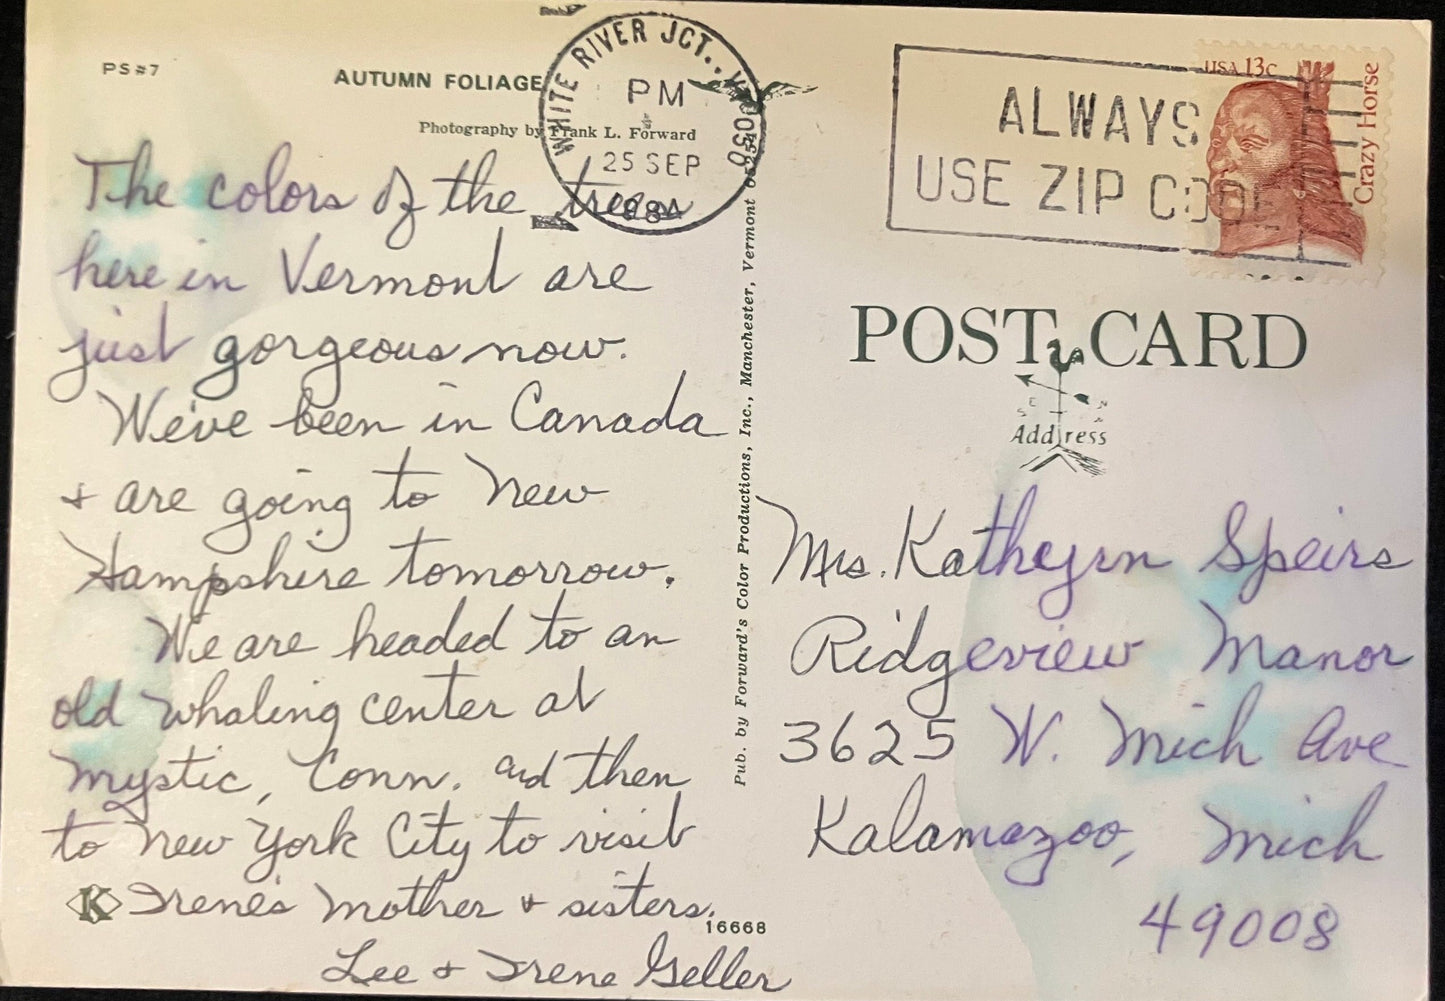 PS#7
AUTUMN FOLIAGE
Photography by Frank L. Forward
WHITE RIVER JCT., V 050
PM
25 SEP
198
ALWAYS
USE ZIP CODE
USA 13c
Crazy Horse
The colors of the trees
here in Vermont are
just gorgeous now.
We've been in Canada
+ are going to New
Hampshire tomorrow.
We are headed to an
old whaling center at
Mystic, Conn. and then
to New York City to visit
K Irene's mother + sisters.
16668
Lee + Irene Geller
Pub. by Forward's Color Productions, Inc., Manchester, Vermont
POST CARD
E N
S
Address
Mrs. Katheyrn Speirs
Ridgeview Manor
3625 W. Mich Ave
Kalamazoo, Mich
49008